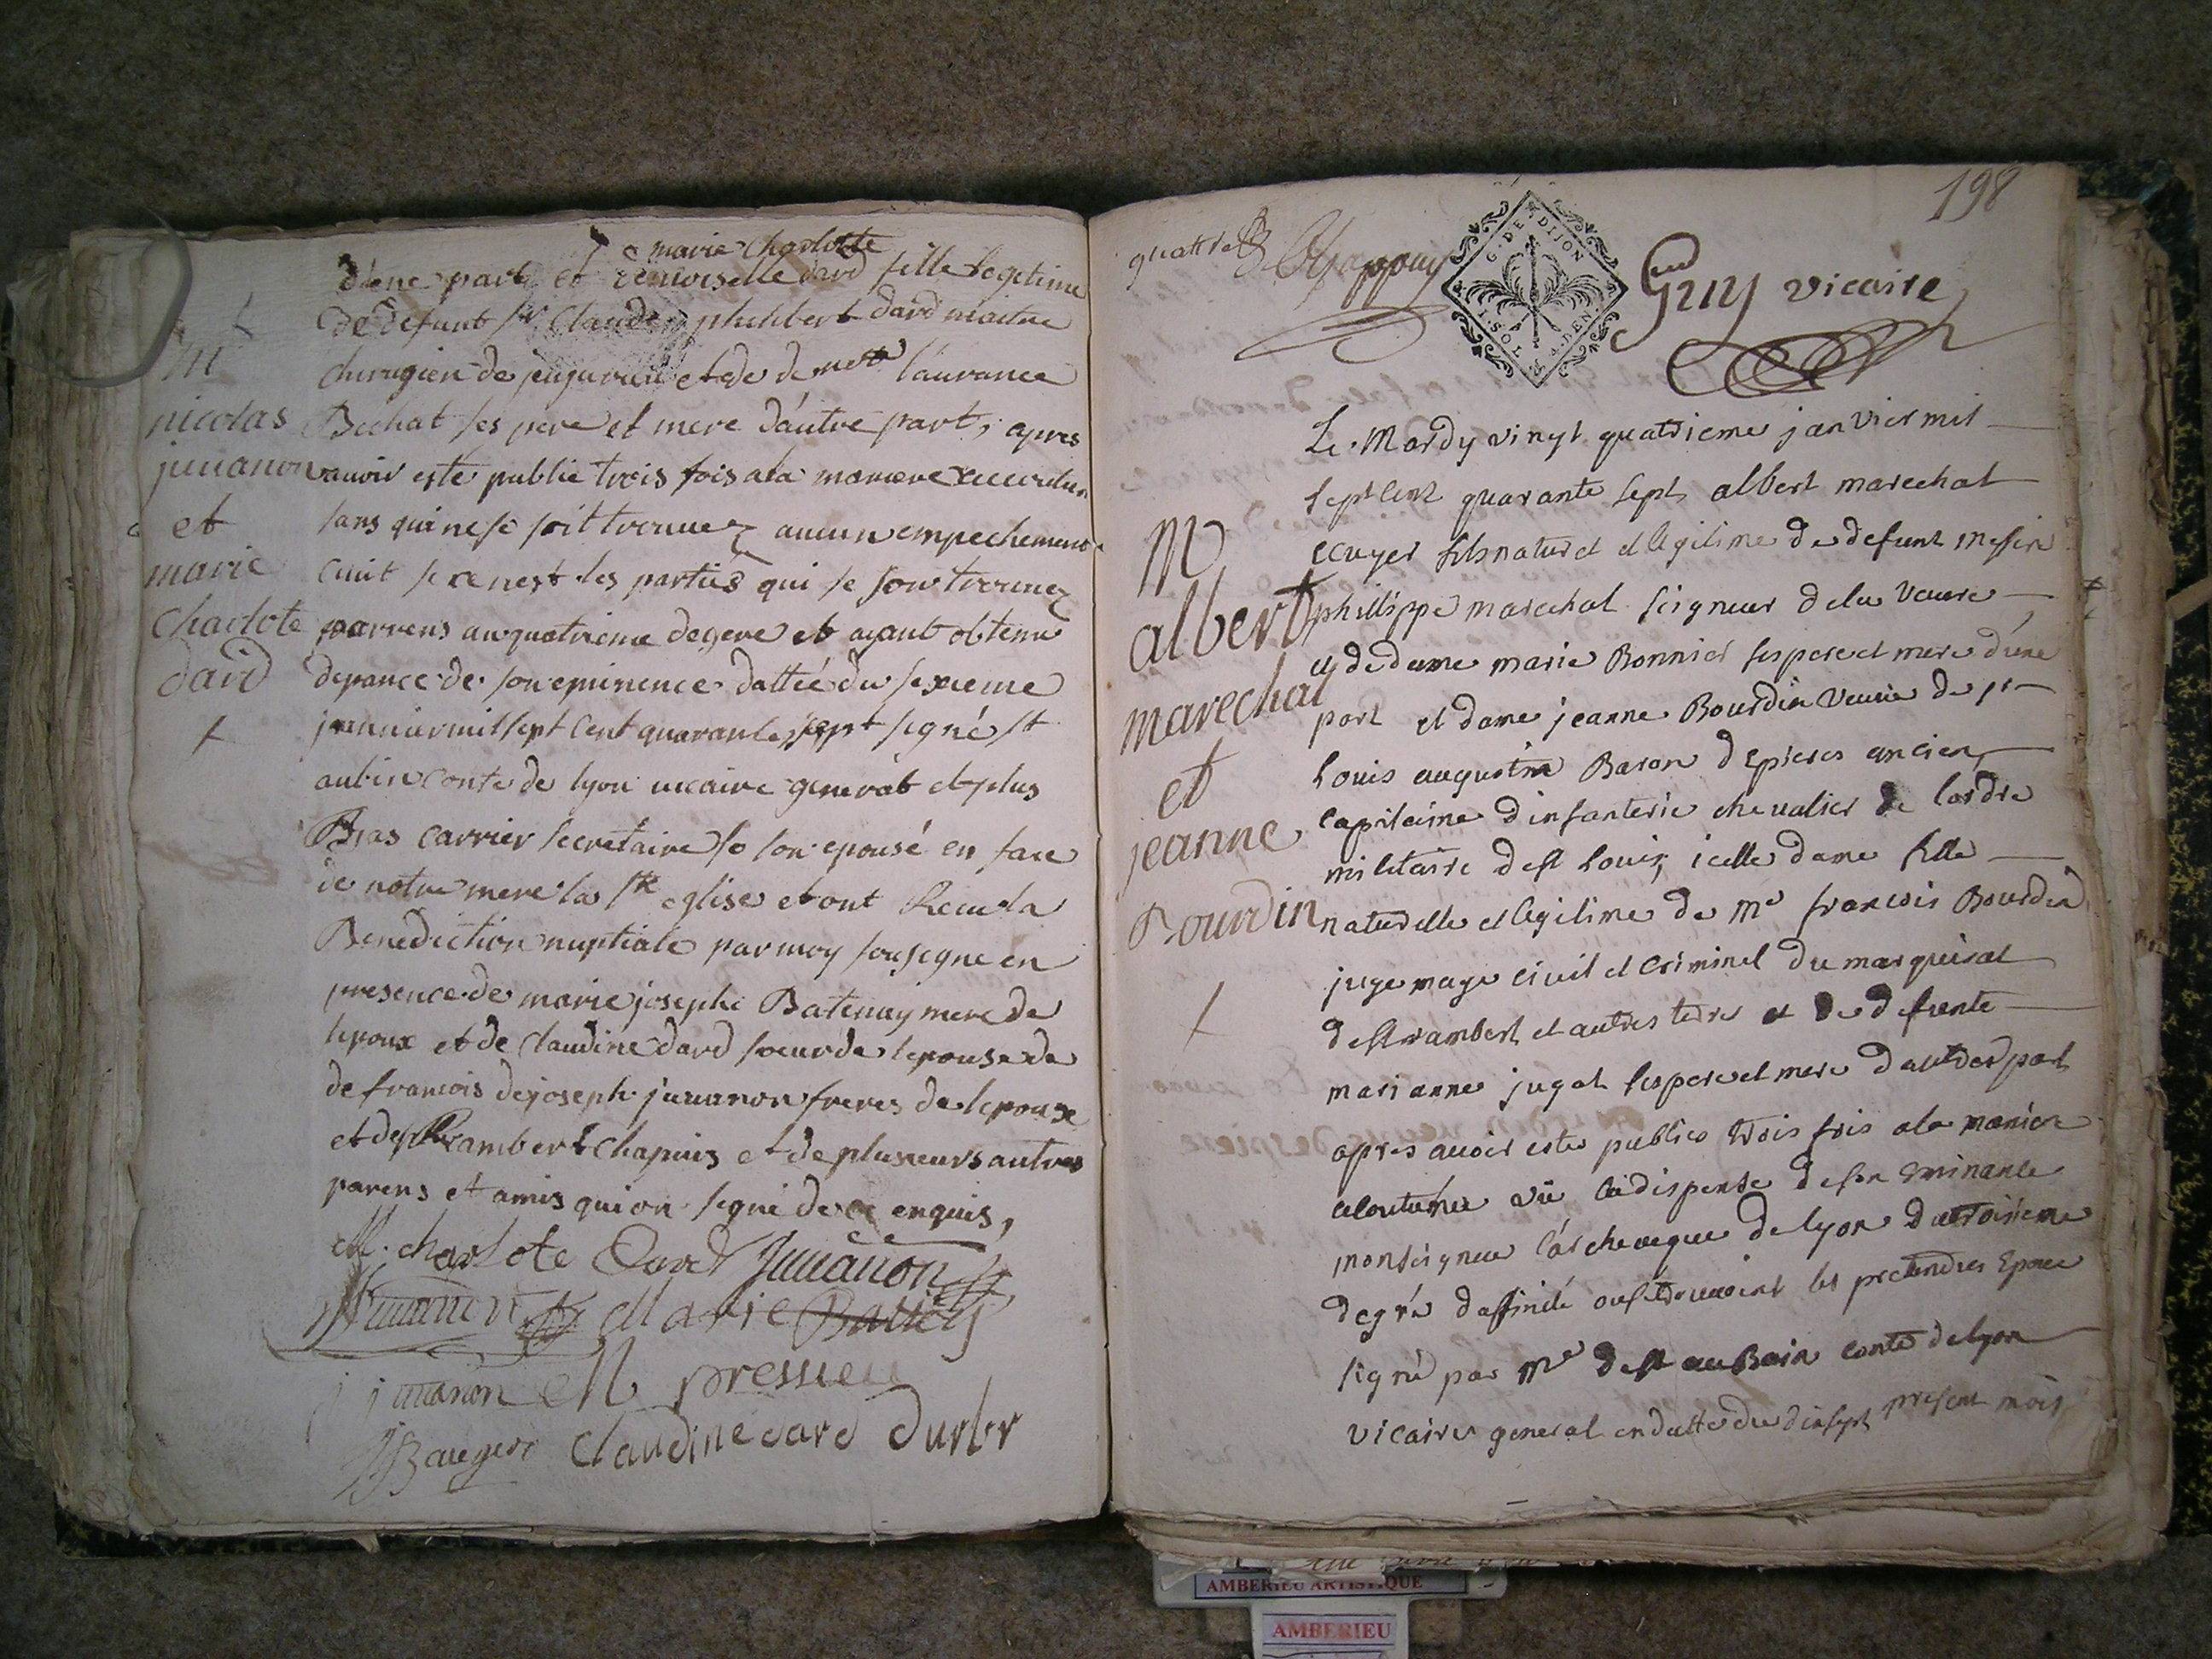 marie charlotte
d'une part et demoiselle dard fille legetime
de defunt sr Claude philibert dard maitre
chirugien de jujurieu et de demelle laurance
Bechat ses pere et mere d'autre part, apres
avoir este publie trois fois a la maniere accoutume
sans qui ne se soit trouuez aucun empechement
ciuit se ce nest les parties qui se son trouuez
parrens au quatrieme degere et ayant obtenu
depance de son eminence dattée du sixieme
januier mil sept cent quarante sept segné st
aubin conte de lyon uicaire generat et plus
Bas carrier secretaire se son epousé en face
de notre mere la ste eglise et ont Receu la
Benediction nuptiale par moy sousegne en
presence de marie josephe Batenay mere de
lepoux et de Claudine dard soeur de lepouse de
de francois de joseph juuanon freres de lepoux
et de st Rambert Chapuis et de plusieurs autres
parens et amis qui on segné de ce enquis,
M
nicolas
juuanon
et
marie
Charlote
dard
M. charlote Dard Juuanon
Juuanon Marie Battey
j juuanon M pressieu
Baugere Claudine dard Durler
198
quattre
Chappuy
G. DE DIJON
1. SOL 4. DEN.
Guy vicaire
Le Mardy vingt quatrieme janvier mil
sept cent quarante sept albert marechal
ecuyer fils naturel et legitime de defunt messire
phillippe marechal seigneur dela Vaure
et de dame marie Bonnier ses pere et mere d'une
part et dame jeanne Bourdin veuve de sr
Louis augustin Baron d Epieres ancien
capitaine d'infanterie chevalier de lordre
militaire de st Louis, icelle dame fille
naturelle et legitime de Me francois Bourdin
juge mage civil et criminel du marquisat
de st rambert et autres terres et de defunte
marianne jugat ses pere et mere d'autre part
apres avoir estes publies trois fois a la maniere
acoutumee vû la dispense de son Eminance
monseigneur l'archeveque de lyon du troisieme
degré d'affinité ou se trouvoient les pretendues Epoux
signé par Me de st auBain conte de lyon
vicaire general en datte du dixsept present mois
M
albert
marechal
et
jeanne
Bourdin
AMBERIEU ARTISTIQUE
AMBERIEU